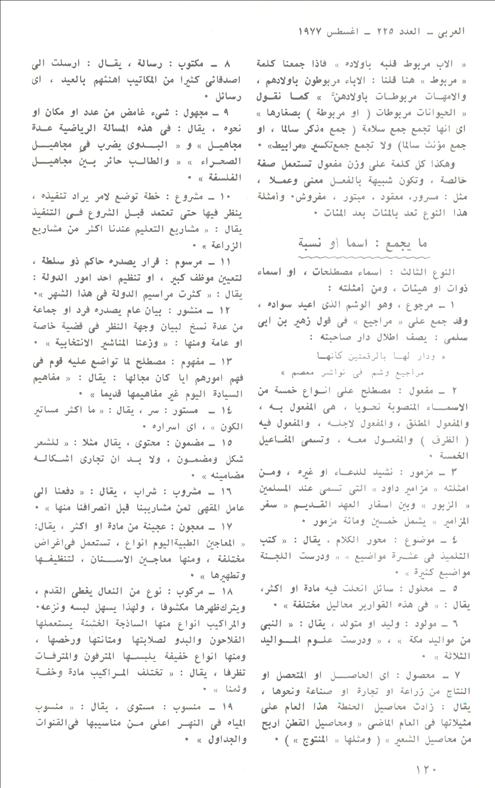 العربي ـ العدد ٢٢٥ ـ اغسطس ١٩٧٧
« الاب مربوط قلبه باولاده » فاذا جمعنا كلمة
« مربوط » هنا قلنا : الاباء مربوطون باولادهم ،
والامهات مربوطات باولادهن » كما نقول
« الحيوانات مربوطات ( او مربوطة ) بصغارها »
اى انها تجمع جمع سلامة ( جمع مذكر سالما ، او
جمع مؤنث سالما) ولا تجمع جمع تكسير «مرابيط» ٠
وهكذا كل كلمة على وزن مفعول تستعمل صفة
خالصة ، وتكون شبيهة بالفعل معنى وعملا ،
مثل : مسرور، معقود ، مبتور ، مفروش٠ وأمثلة
هذا النوع تعد بالمئات بعد المئات ٠
ما يجمع : اسما او نسبة
النوع الثالث : اسماء مصطلحات ، او اسماء
ذوات او هيئات ، ومن امثلته :
١ ـ مرجوع ، وهو الوشم الذى اعيد سواده ،
وقد جمع على « مراجيع » فى قول زهير بن ابى
سلمى : يصف اطلال دار صاحبته :
« ودار لهـا بالرقمتين كأنهـا
مراجيع وشم فى نواشر معصم »
٢ ـ مفعول : مصطلح على انـواع خمسة من
الاسمـاء المنصوبة نحويا ، هى المفعول بـه ،
والمفعول المطلق ، والمفعول لاجلـه ، والمفعول فيه
( الظرف ) والمفعـول معه ، وتسمى المفـاعيل
الخمسة ٠
٣ ـ مزمور : نشيد للدعـاء او غيره ، ومـن
امثلته « مزامير داود » التى تسمى عند المسلمين
« الزبور » وبين اسفار العهد القـديـم « سفر
المزامير » يشمل خمسين ومائة مزمور ٠
٤ ـ موضوع : محور الكلام ، يقال : « كتب
التلميذ فى عشـرة مواضيع » « ودرست اللجنـة
مواضيع كثيرة » ٠
٥ ـ محلول : سائل انحلت فيه مادة او اكثر،
يقال : « فى هذه القوارير محاليل مختلفة » ٠
٦ ـ مولود : وليد او متولد ، يقال : « النبى
من مواليد مكة » ، «ودرست علـوم المـواليد
الثلاثة » ٠
٧ ـ محصول : اى الحاصـل او المتحصل او
النتاج من زراعة او تجارة او صناعة ونحوها ،
يقال : زادت محاصيل الحنطة هذا العام على
مثيلاتها فى العام الماضى « ومحاصيل القطن اربح
من محاصيل الشعير » ( ومثلها « المنتوج » ) ٠
٨ ـ مكتوب : رسالة ، يقـال : ارسلت الى
اصدقائى كثيرا من المكاتيب اهنئهم بالعيد ، اى
رسائل ٠
٩ ـ مجهول : شىء غامض من عدد او مكان او
نحوه ، يقال : فى هذه المسالة الرياضية عـدة
مجاهيل » و « البـدوى يضرب فى مجاهيـل
الصحراء » « والطالب حائر بين مجاهيـل
الفلسفة »
١٠ ـ مشروع : خطة توضع لامر يراد تنفيذه ،
ينظر فيها حتى تعتمد قبـل الشروع فـى التنفيذ
يقال : « مشاريع التعليم عندنا اكثر من مشاريع
الزراعة »
١١ ـ مرسوم : قرار يصدره حاكم ذو سلطة ،
لتعيين موظف كبير ، او تنظيم احد امور الدولة :
يقال : « كثرت مراسيم الدولة فى هذا الشهر »٠
١٢ ـ منشور : بيان عام يصدره فرد او جماعة
من عدة نسخ لبيان وجهة النظر فى قضية خاصة
او عامة ومنها : « وزعنا المناشير الانتخابية » ٠
١٣ ـ مفهوم : مصطلح لما تواضع عليه قوم فى
فهم امورهم ايا كان مجالها : يقال : « مفاهيم
السيادة اليوم غير مفاهيمها قديما » ٠
١٤ ـ مستور : سر ، يقال : « ما اكثر مساتير
الكون » ، اى اسراره ٠
١٥ ـ مضمون : محتوى ، يقال مثلا : « للشعر
شكل ومضمـون ، ولا بد ان تجارى اشكـاله
مضامينه » ٠
١٦ ـ مشروب : شراب ، يقال : « دفعنا الى
عامل المقهى ثمن مشاريبنا قبل انصرافنا منها » ٠
١٧ ـ معجون : عجينة من مادة او اكثر ، يقال:
« المعاجين الطبية اليوم انواع ، تستعمل فى اغراض
مختلفة ، ومنها معاجيـن الاسنـان ، لتنظيفـها
وتطهيرها » ٠
١٨ ـ مركوب : نوع من النعال يغطى القدم ،
ويترك ظهرها مكشوفا ، ولهذا يسهل لبسه ونزعه٠
والمراكيب انواع منها الساذجة الخشنة يستعملها
الفلاحون والبدو لصلابتها ومتانتها ورخصها ،
ومنها انواع خفيفة يلبسـها المترفون والمترفات
تظرفا ، يقال : « تختلف المـراكيب مادة وخفـة
وثمنا » ٠
١٩ ـ منسوب : مستوى ، يقال : « منسوب
المياه فى النهـر اعلى مـن مناسيبها فى القنوات
والجداول » ٠
١٢٠